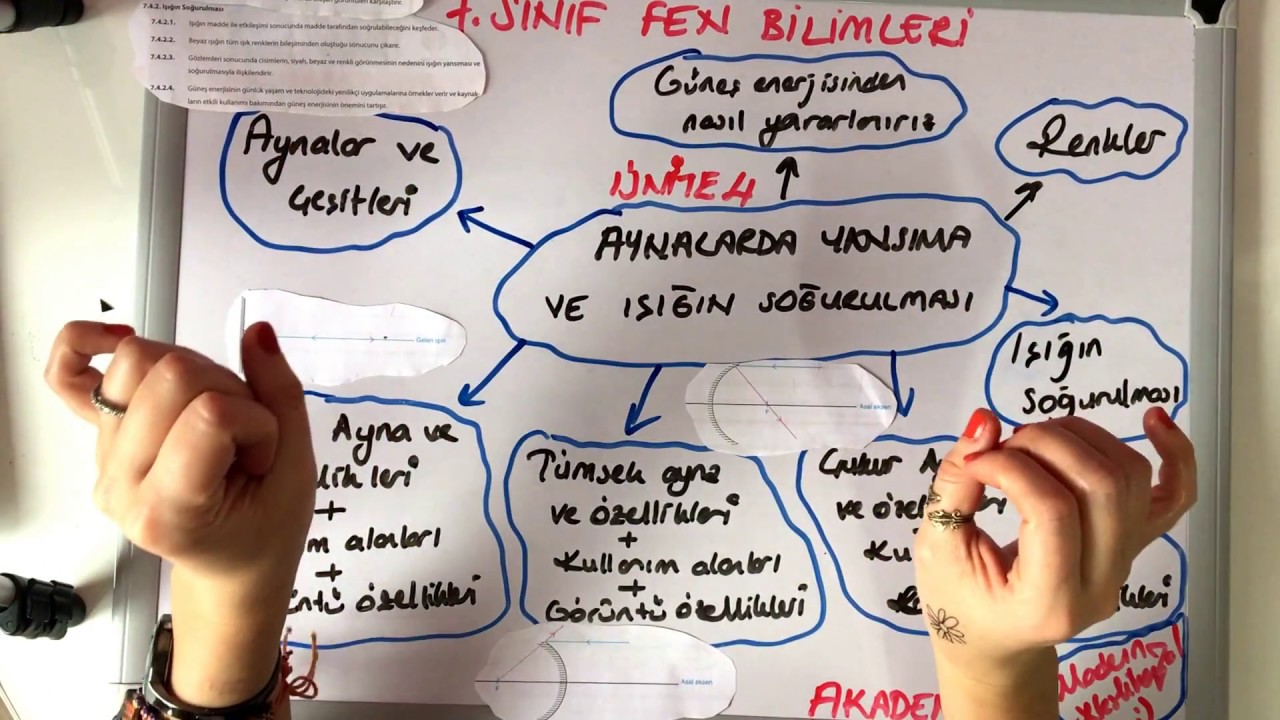 7.4.2. Işığın Soğurulması
7.4.2.1. Işığın madde ile etkileşimi sonucunda madde tarafından soğrulabileceğini keşfeder.
7.4.2.2. Beyaz ışığın tüm ışık renklerin bileşiminden oluştuğu sonucunu çıkarır.
7.4.2.3. Gözlemleri sonucunda cisimlerin, siyah, beyaz ve renkli görünmesinin nedenini ışığın yansıması ve
soğurulmasıyla ilişkilendirir.
7.4.2.4. Güneş enerjisinin günlük yaşam ve teknolojideki yenilikçi uygulamalarına örnekler verir ve kaynak-
ların etkili kullanımı bakımından güneş enerjisinin önemini tartışır.
7. SINIF FEN BİLİMLERİ
Güneş enerjisinden
nasıl yararlanırız
Renkler
Aynalar ve
Çeşitleri
ÜNİTE 4
AYNALARDA YANSIMA
VE IŞIĞIN SOĞURULMASI
Işığın
soğurulması
Gelen ışın
Asal eksen
F
Ayna ve
+
alanları
+
özellikleri
Tümsek ayna
ve özellikleri
+
Kullanım alanları
+
Görüntü özellikleri
Çukur
ve
Asal eksen